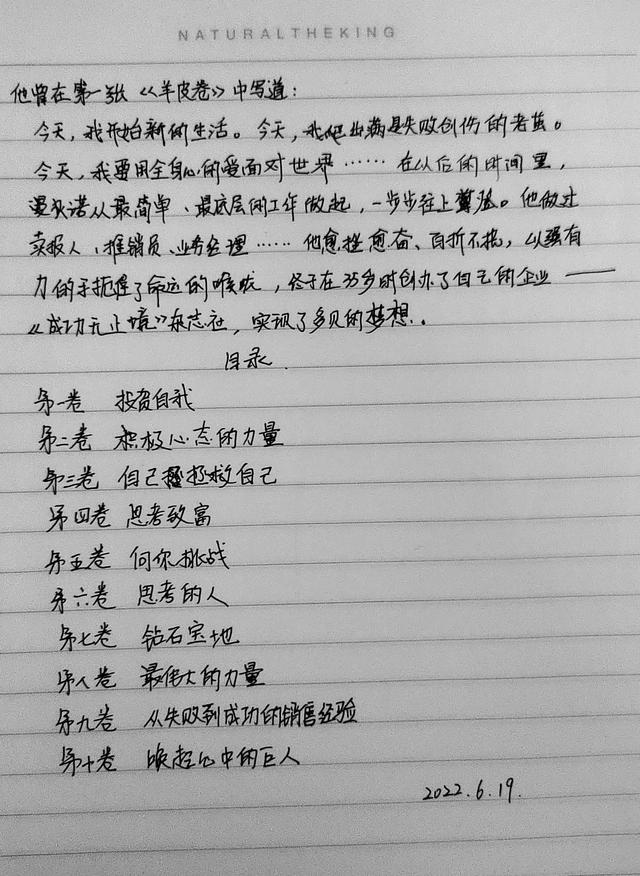 NATURALTHEKING
他曾在第一张《羊皮卷》中写道：
今天，我开始新的生活。今天，我爬出满是失败创伤的老茧。
今天，我要用全身心的爱面对世界……在以后的时间里，
承诺从最简单、最底层的工作做起，一步步往上。他做过
卖报人、推销员、业务经理……他愈挫愈奋、百折不挠，以强有
力的手扼握了命运的喉咙，终于在35岁时创办了自己的企业——
《成功无止境》杂志社，实现了多贝的梦想。
目录
第一卷 投资自我
第二卷 积极心态的力量
第三卷 自己拯救自己
第四卷 思考致富
第五卷 向你挑战
第六卷 思考的人
第七卷 钻石宝地
第八卷 最伟大的力量
第九卷 从失败到成功的销售经验
第十卷 唤起心中的巨人
2022.6.19.